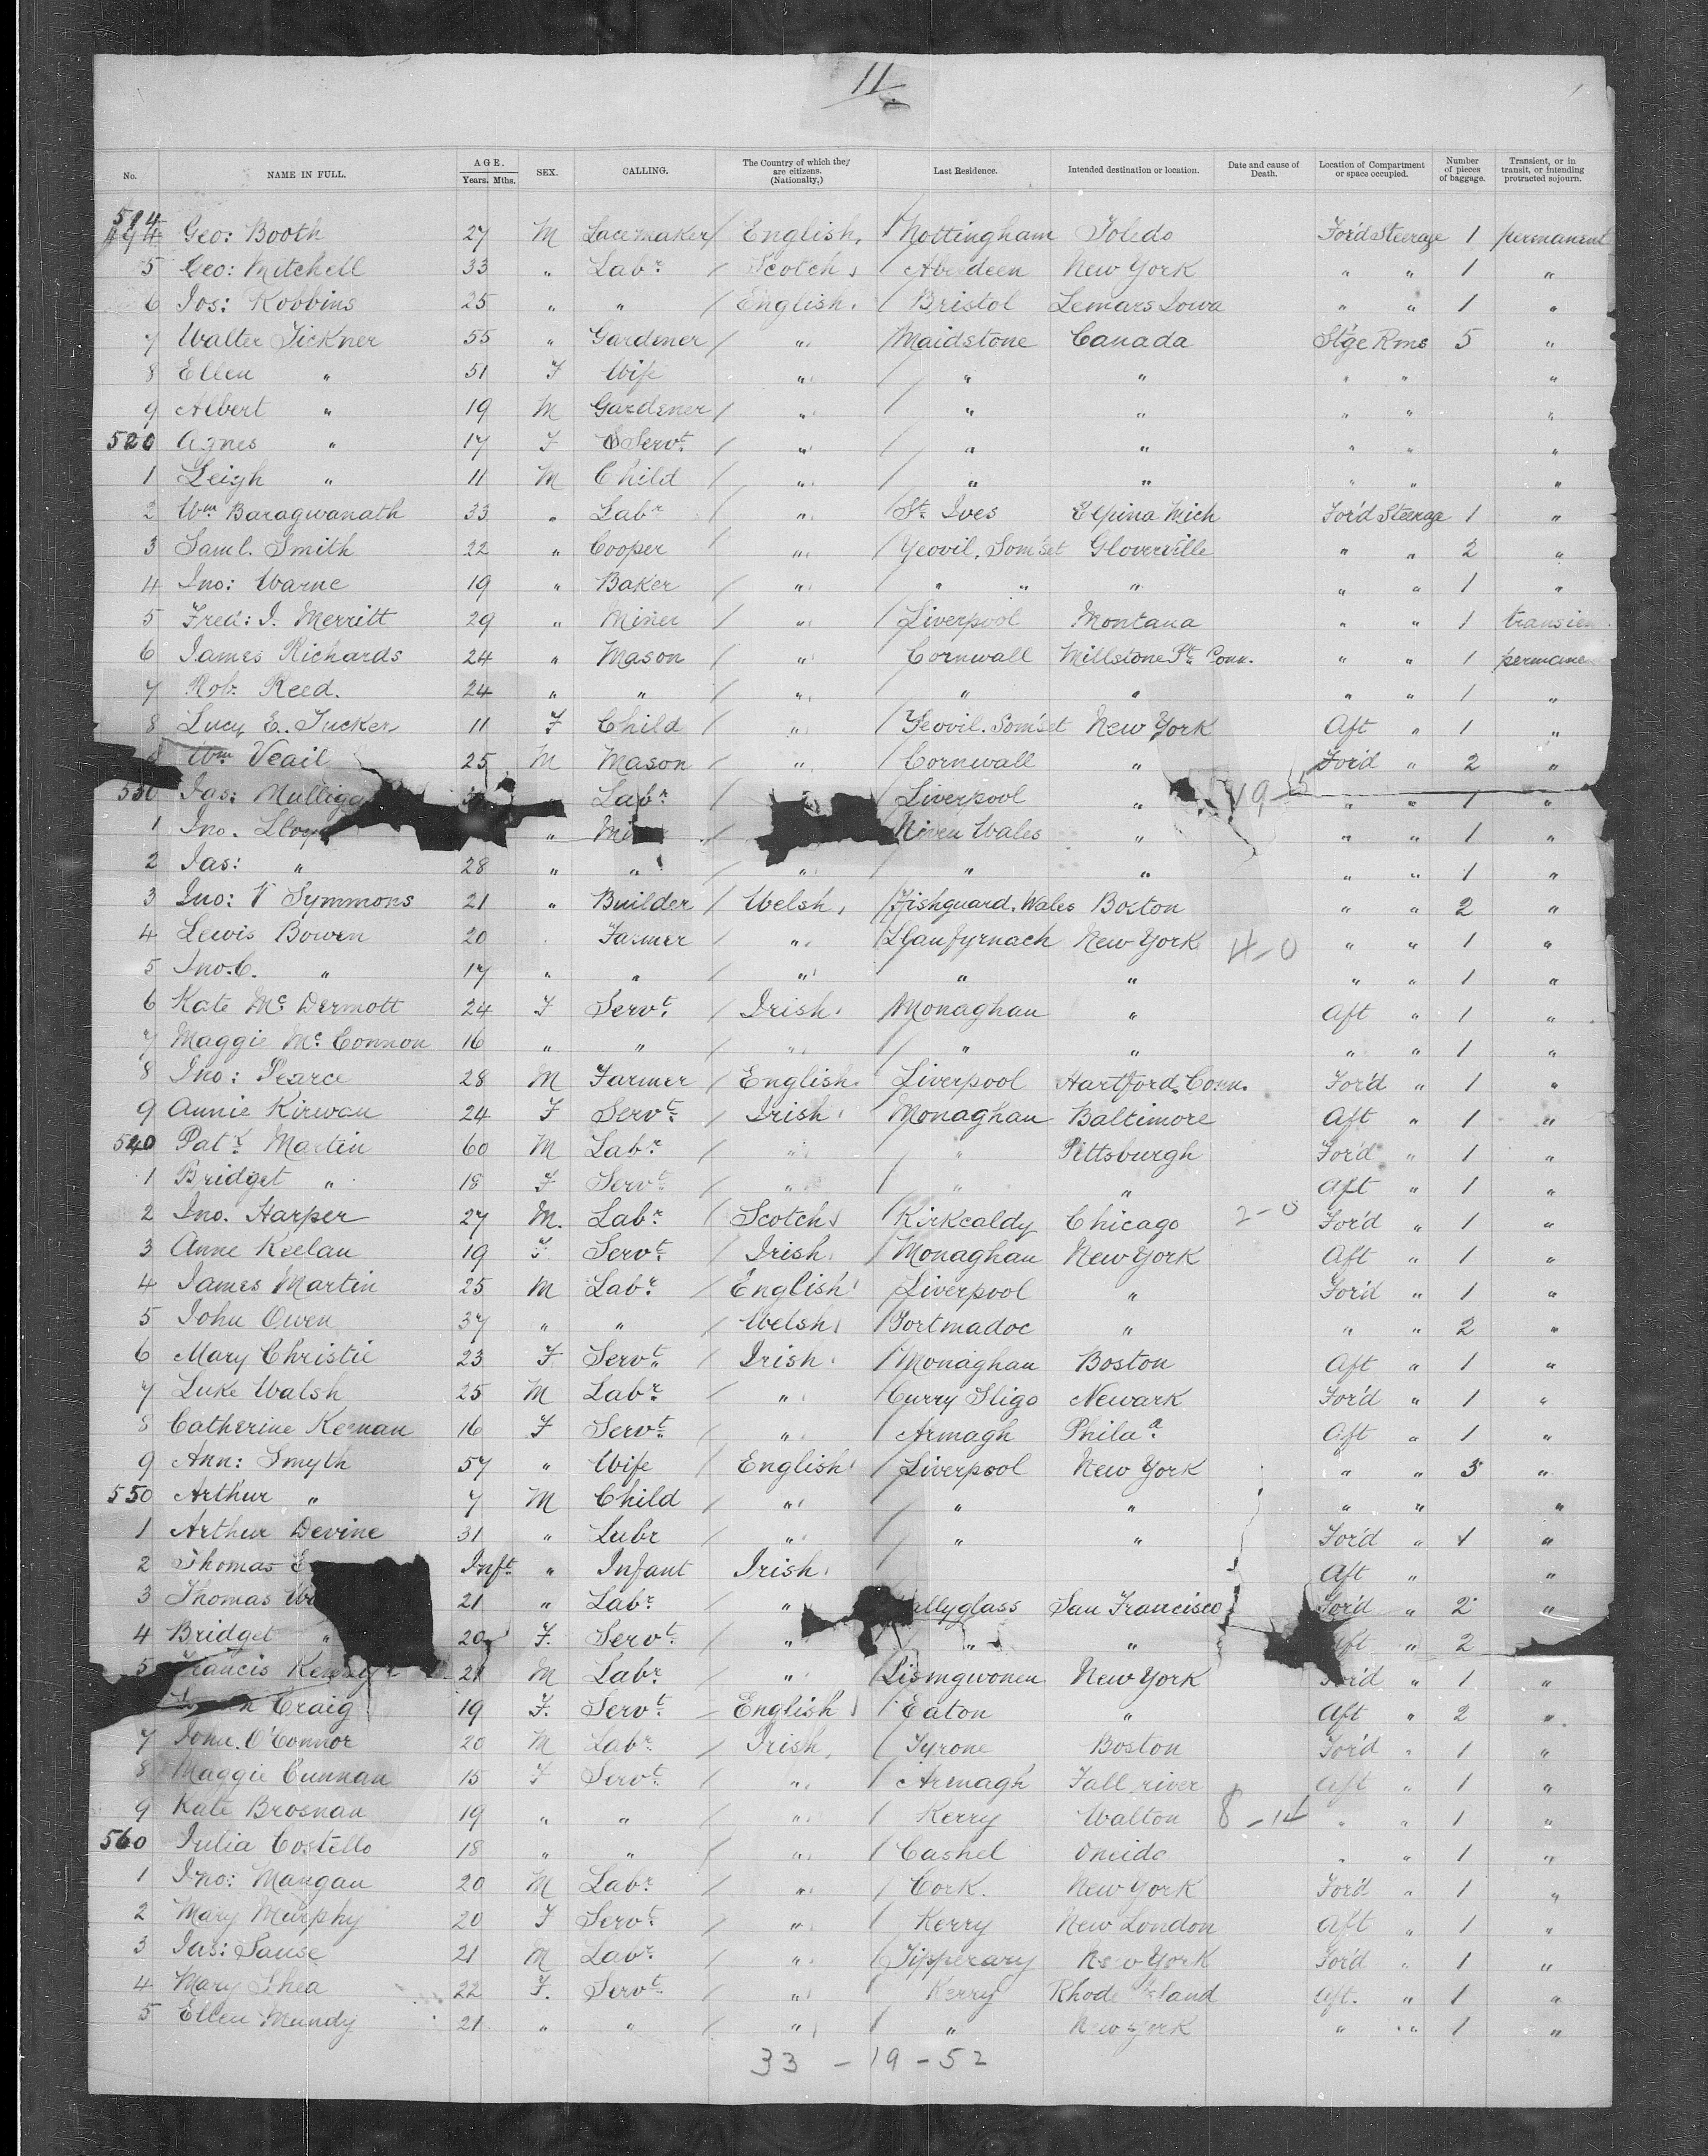 11
No. NAME IN FULL. AGE. Years. Mths. SEX. CALLING. The Country of which they are citizens. (Nationality,) Last Residence. Intended destination or location. Date and cause of Death. Location of Compartment or space occupied. Number of pieces of baggage. Transient, or in transit, or intending protracted sojourn.
514 Geo: Booth 27 M Lacemaker / English, / Nottingham Toledo For'd Steerage 1 permanent
5 Geo: Mitchell 33 " Labr / Scotch / Aberdeen New York " " 1 "
6 Jos: Robbins 25 " " / English. / Bristol Lemars Iowa " " 1 "
7 Walter Tickner 55 " Gardener / " / Maidstone Canada Stge Rms 5 "
8 Ellen " 51 F Wife " / " " " " "
9 Albert " 19 M Gardener / " / " " " " "
520 Agnes " 17 F Servt / " / " " " " "
1 Leigh " 11 M Child / " / " " " " "
2 Wm Baragwanath 33 " Labr / " / St. Ives Elpina Mich For'd Steerage 1 "
3 Saml. Smith 22 " Cooper / " / Yeovil, Som'set Gloverville " " 2 "
4 Jno: Warne 19 " Baker / " / " " " " " 1 "
5 Fred: J. Merritt 29 " Miner / " / Liverpool Montana " " 1 transien
6 James Richards 24 " Mason / " / Cornwall Millstone Pt. Conn. " " 1 permanen
7 Robt Reed. 24 " " / " / " " " " 1 "
8 Lucy E. Tucker 11 F Child / " / Yeovil. Som'set New York Aft " 1 "
Wm Veail 25 M Mason / " / Cornwall " For'd " 2 "
530 Jas: Mullig Labr / / Liverpool " " " 1 "
1 Jno. Lloy " Mi / Wales " " " 1 "
2 Jas: " 28 " " " " " " " 1 "
3 Jno: V Symmons 21 " Builder / Welsh, / Fishguard. Wales Boston " " 2 "
4 Lewis Bowen 20 Farmer / " / Llanfyrnach New York 4-0 " " 1 "
5 Jno. C. " 17 " " / " / " " " " 1 "
6 Kate Mc Dermott 24 F Servt. / Irish. / Monaghan " Aft " 1 "
7 Maggie Mc Connon 16 " " / " / " " " " 1 "
8 Jno: Pearce 28 M Farmer / English. / Liverpool Hartford, Conn. For'd " 1 "
9 Annie Kirwan 24 F Servt. / Irish. / Monaghan Baltimore Aft " 1 "
540 Patk Martin 60 M Labr / " / " Pittsburgh For'd " 1 "
1 Bridget " 18 F Servt / " / " " Aft " 1 "
2 Jno. Harper 27 M. Labr / Scotch / Kirkcaldy Chicago 2-0 For'd " 1 "
3 Anne Keelan 19 F Servt. / Irish. / Monaghan New York Aft " 1 "
4 James Martin 25 M Labr / English / Liverpool " For'd " 1 "
5 John Owen 37 " " / Welsh / Portmadoc " " " 2 "
6 Mary Christie 23 F Servt. / Irish. / Monaghan Boston Aft " 1 "
7 Luke Walsh 25 M Labr / " / Curry Sligo Newark For'd " 1 "
8 Catherine Keenan 16 F Servt. / " / Armagh Phila. Aft " 1 "
9 Ann: Smyth 57 " Wife / English / Liverpool New York " " 3 "
550 Arthur " 7 M Child / " / " " " " "
1 Arthur Devine 31 " Labr / " / " " For'd " 1 "
2 Thomas Inft. " Infant Irish. / Aft " "
3 Thomas 21 " Labr / " allyglass San Francisco For'd " 2 "
4 Bridget " 20 F. Servt. / " " " Aft " 2 "
5 Francis 21 M Labr / " / New York For'd " 1 "
Craig 19 F. Servt. / English / Eaton " Aft " 2 "
7 John. O'Connor 20 M Labr / Irish, / Tyrone Boston For'd " 1 "
8 Maggie Cunnan 15 F Servt. / " / Armagh Fall river Aft " 1 "
9 Kate Brosnan 19 " " / " / Kerry Walton 8-14 " " 1 "
560 Julia Costello 18 " " / " / Cashel Oneida " " 1 "
1 Jno: Mangan 20 M Labr / " / Cork. New York For'd " 1 "
2 Mary Murphy 20 F Servt. / " / Kerry New London Aft " 1 "
3 Jas: Sause 21 M Labr / " / Tipperary New York For'd " 1 "
4 Mary Shea 22 F. Servt. / " / Kerry Rhode Island Aft. " 1 "
5 Ellen Mundy 21 " " / " / " New York " " 1 "
33 - 19 - 52